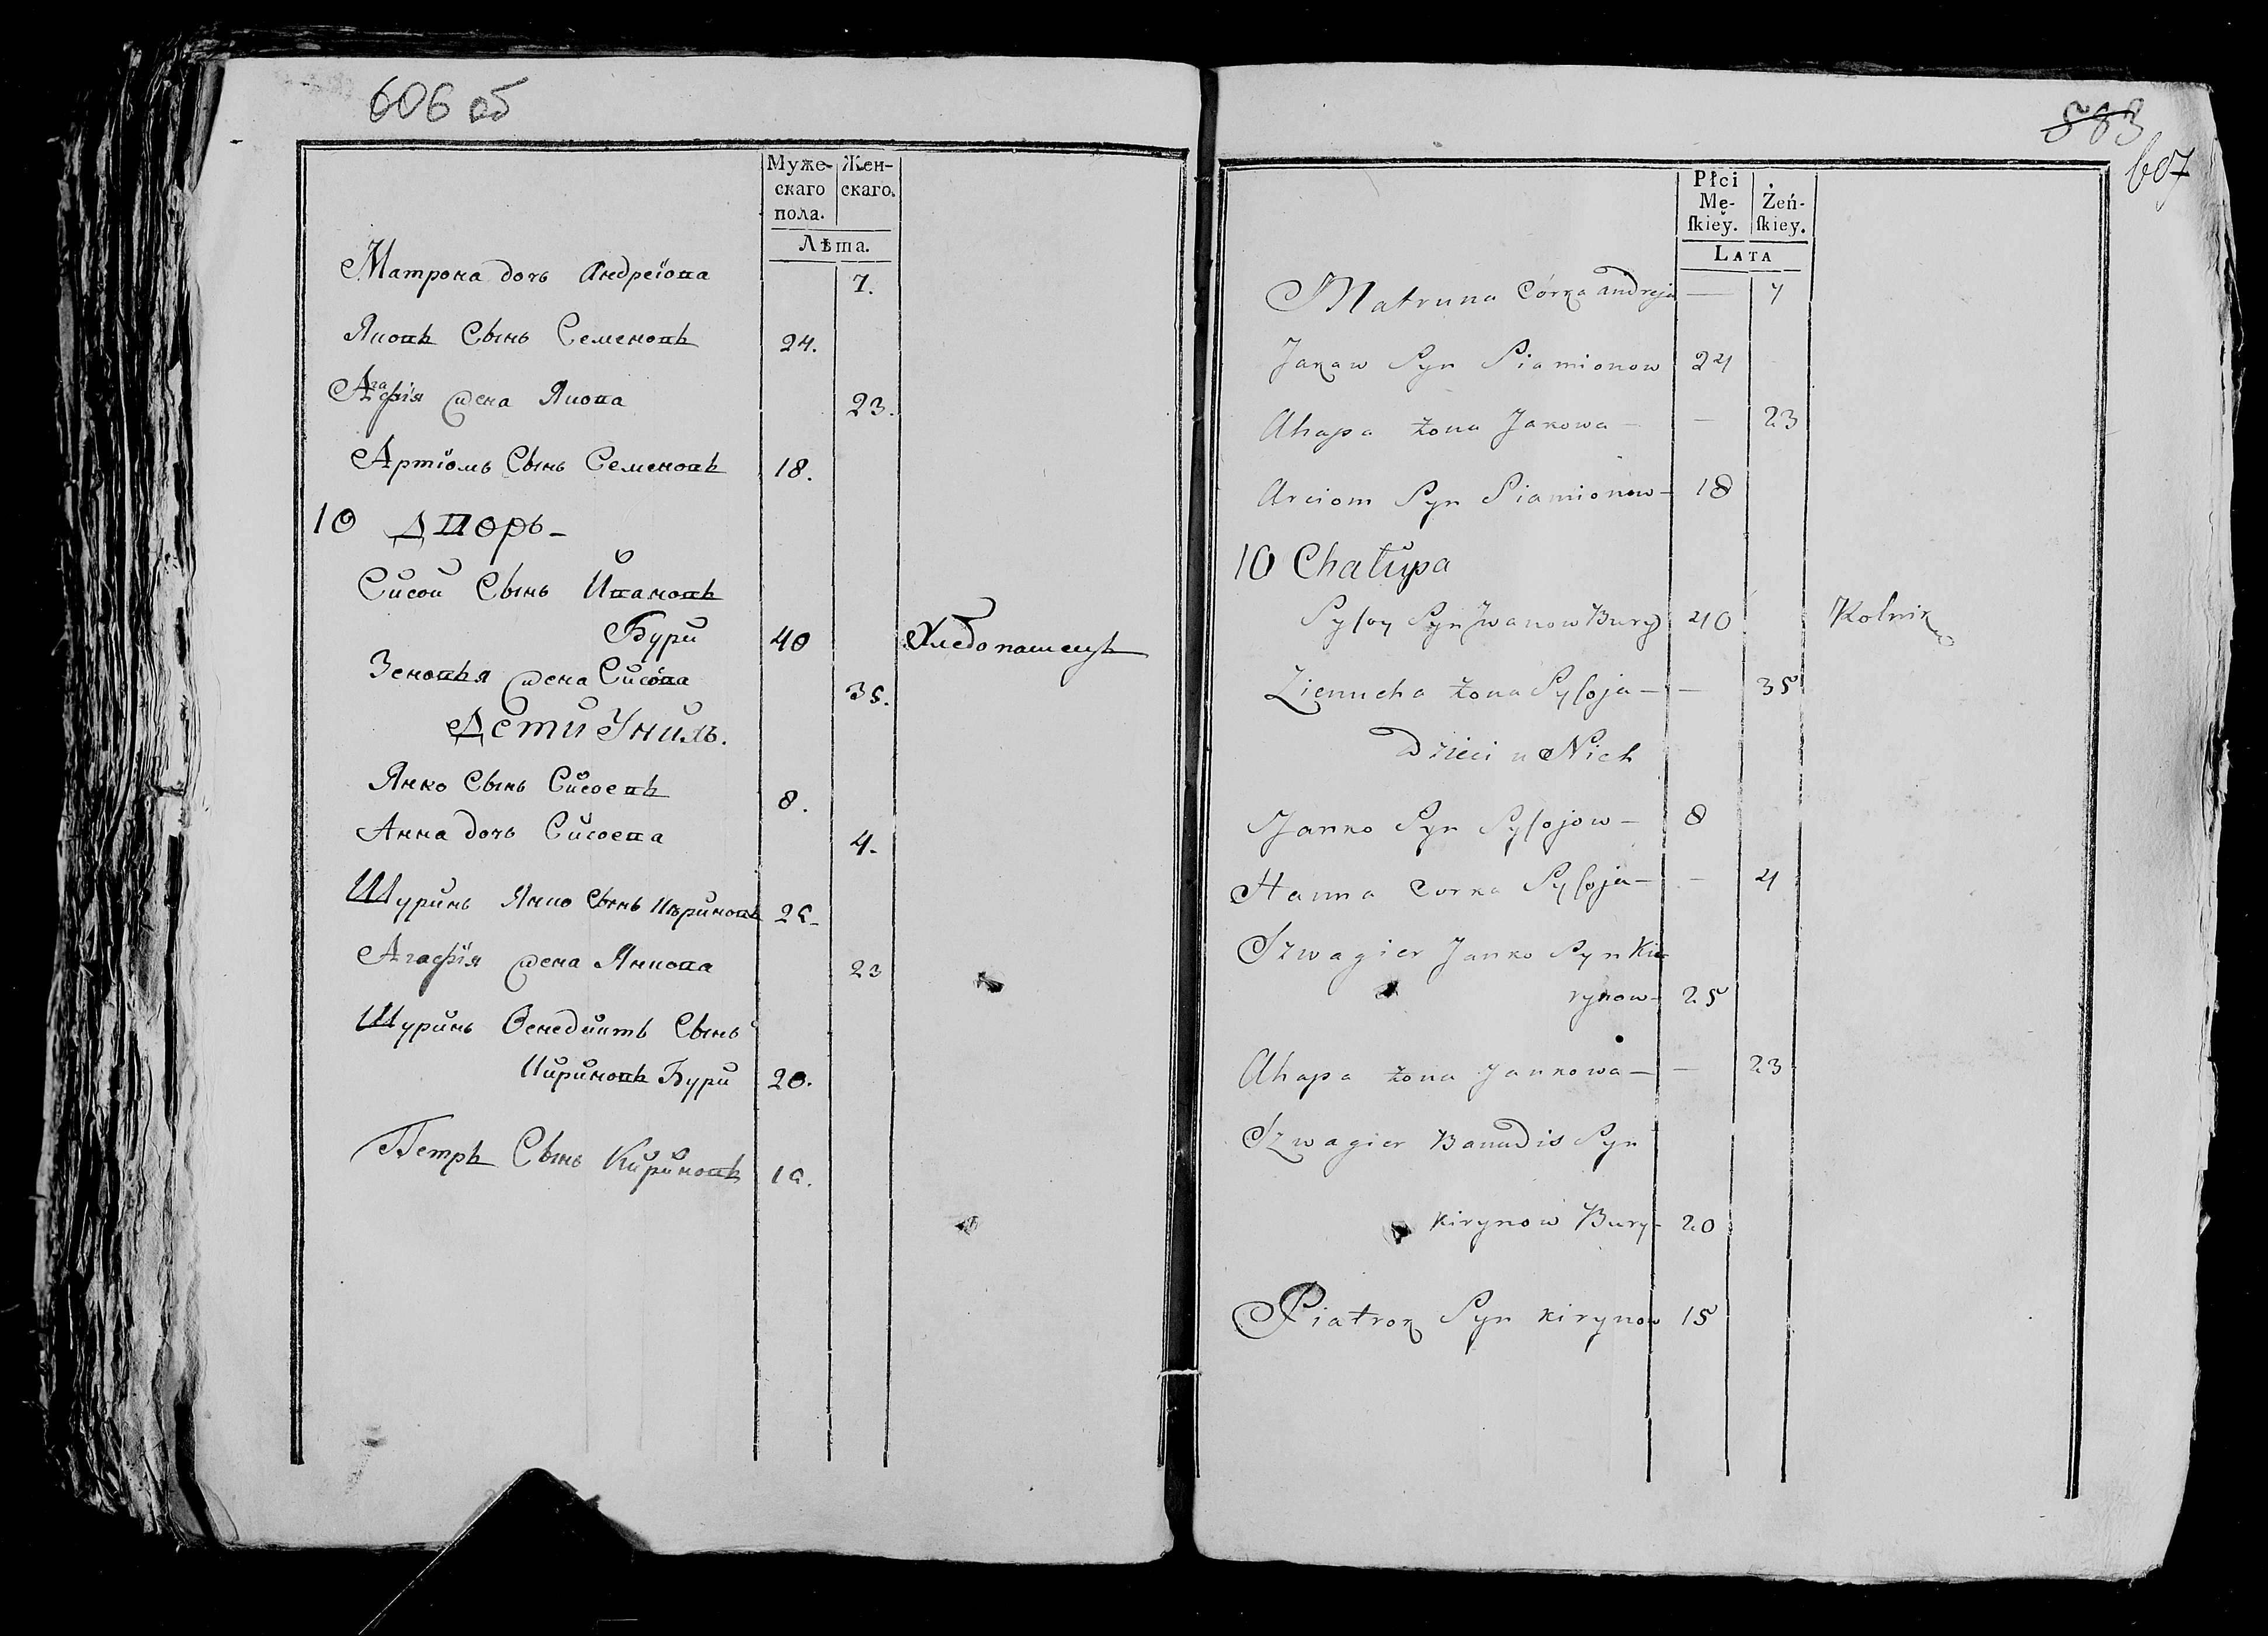 606 об
Муже-
скаго
пола.
Жен-
скаго.
Лѣта.
Матрона дочь Андреiова 7.
Яковъ Сынъ Семеновъ 24.
Агафiя жена Якова 23.
Артiомъ Сынъ Семеновъ 18.
10 Дворъ -
Сисой Сынъ Ивановъ
Бури 40 Хлебопашецъ
Зеновья жена Сисоiа 35.
Дети Уних.
Янко Сынъ Сисоевъ 8.
Анна дочь Сисоева 4.
Шуринъ Янко Сынъ Кѣриновъ 25
Агафiя жена Янкова 23
Шуринъ Венедиктъ Сынъ
Кириновъ Бури 20.
Петръ Сынъ Кириновъ 15.
583
607
Płci
Mę-
ſkiey.
Żeń-
ſkiey.
LATA
Matruna Córka andreja — 7
Jakaw Syn Siamionow 24
Ahapa żona Jakowa — — 23
Arciom Syn Siamionow - 18
10 Chałupa
Syſoy Syn Jwanow Bury 40 Rolnik
Zienucha żona Syſoja — — 35
Dzieci u Nich
Janko Syn Syſojow — 8
Hanna Corka Syſoja — - 4
Szwagier Janko Syn Ki-
rynow - 25
Ahapa żona Jankowa — — 23
Szwagier Banadis Syn
Kirynow Bury - 20
Piatrok Syn Kirynow 15